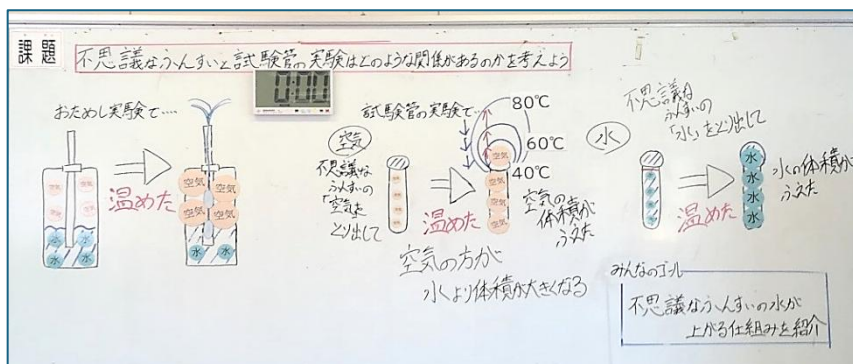 課題
不思議なふんすいと試験管の実験はどのような関係があるのかを考えよう
0:00
おためし実験で‥‥
空気
空気
空気
空気
水
水
温めた
空気
空気
空気
空気
水
水
試験管の実験で‥‥
空気
不思議な
ふんすいの
「空気」を
とり出して
温めた
80℃
60℃
40℃
空気
空気
空気
空気
空気の
体積が
ふえた
空気の方が
水より体積が大きくなる
水
不思議な
ふんすいの
「水」をとり出して
温めた
水
水
水
水
水の体積が
ふえた
みんなのゴール
不思議なふんすいの水が
上がる仕組みを紹介